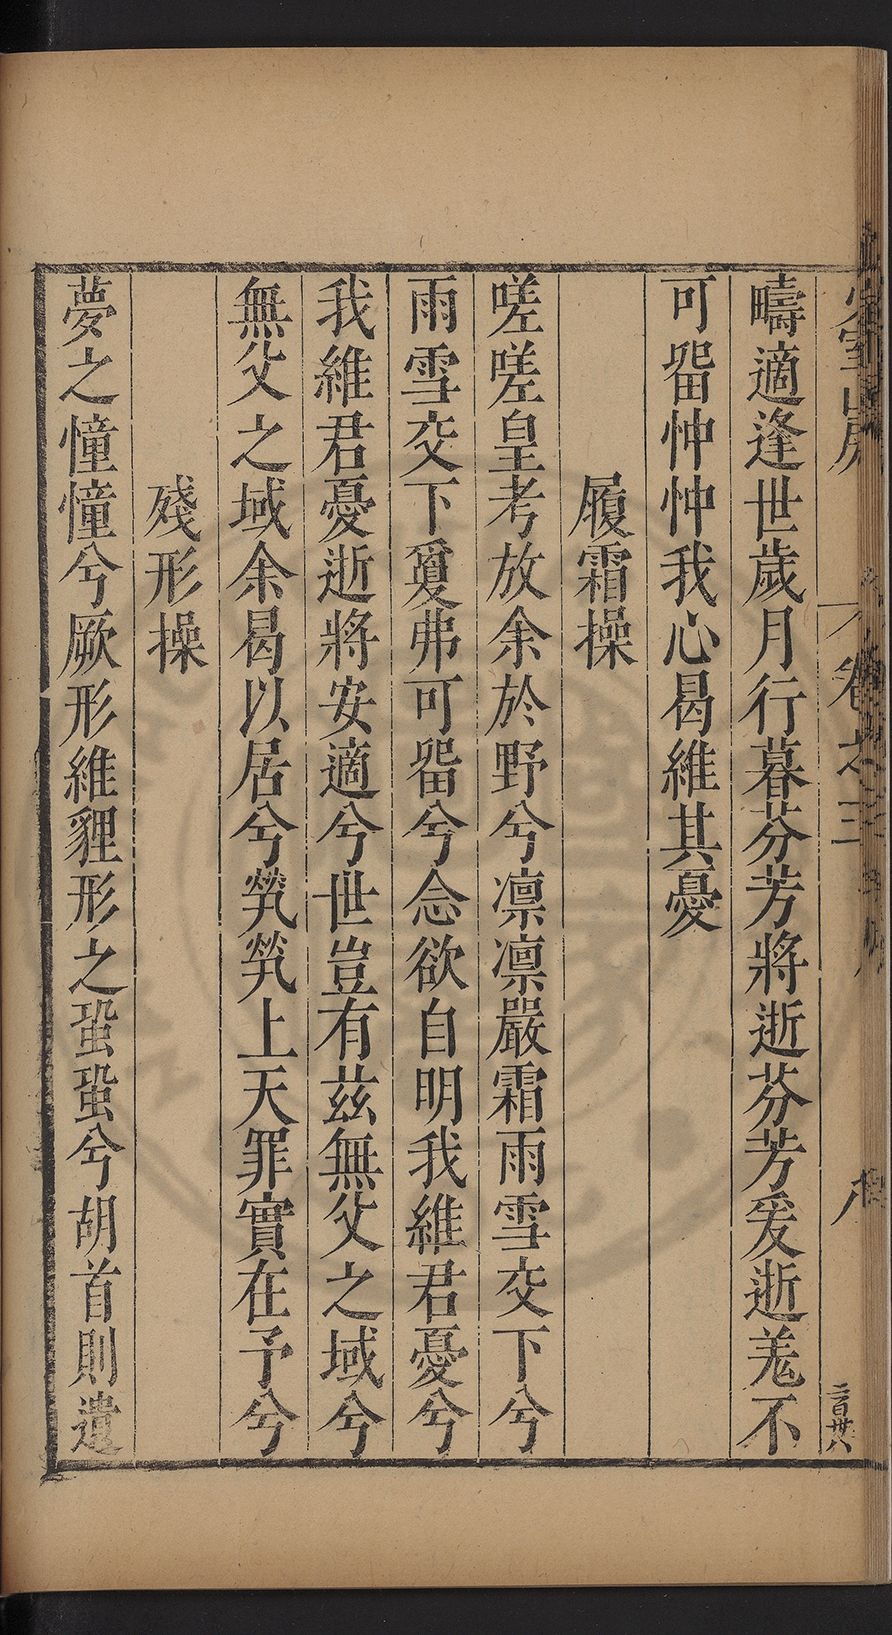 少室山房
卷之三
八
二百廿八
疇適逢世歲月行暮芬芳將逝芬芳爰逝羌不
可畱忡忡我心曷維其憂
履霜操
嗟嗟皇考放余於野兮凛凛嚴霜雨雪交下兮
雨雪交下夐弗可畱兮念欲自明我維君憂兮
我維君憂逝將安適兮世豈有茲無父之域兮
無父之域余曷以居兮煢煢上天罪實在予兮
殘形操
夢之憧憧兮厥形維貍形之蛩蛩兮胡首則遺